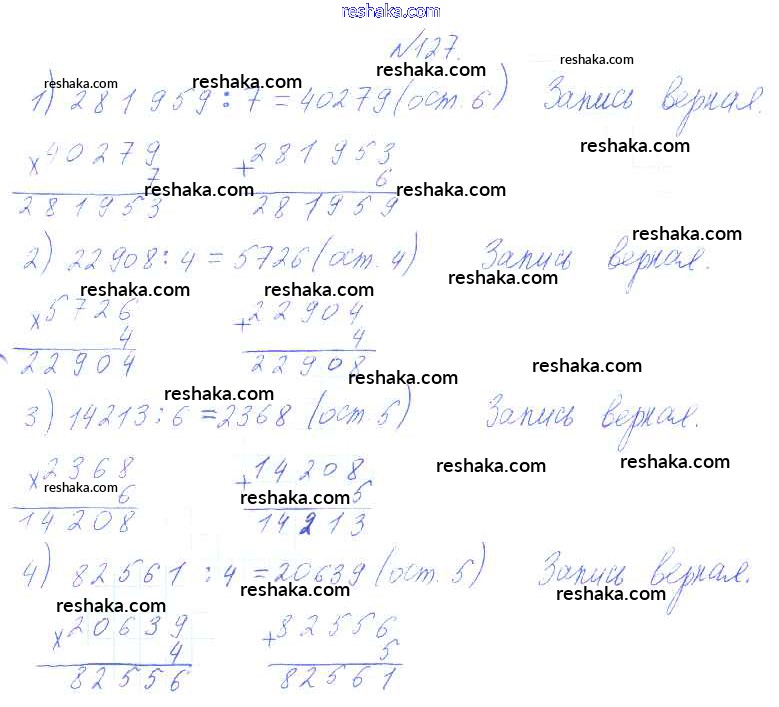 reshaka.com
№127.
reshaka.com reshaka.com reshaka.com
1) 281 959 : 7 = 40279 (ост. 6) Запись верная.
reshaka.com
× 40279 + 281953
7 6
reshaka.com reshaka.com
281953 281959
reshaka.com
2) 22908 : 4 = 5726 (ост. 4) Запись верная.
reshaka.com
reshaka.com reshaka.com
× 5726 + 22904
4 4
22904 22908
reshaka.com reshaka.com
reshaka.com
3) 14213 : 6 = 2368 (ост. 5) Запись верная.
reshaka.com reshaka.com
× 2368 + 14208
reshaka.com 6 reshaka.com 5
14208 14213
4) 82561 : 4 = 20639 (ост. 5) Запись верная.
reshaka.com reshaka.com reshaka.com
× 20639 + 82556
4 5
82556 82561